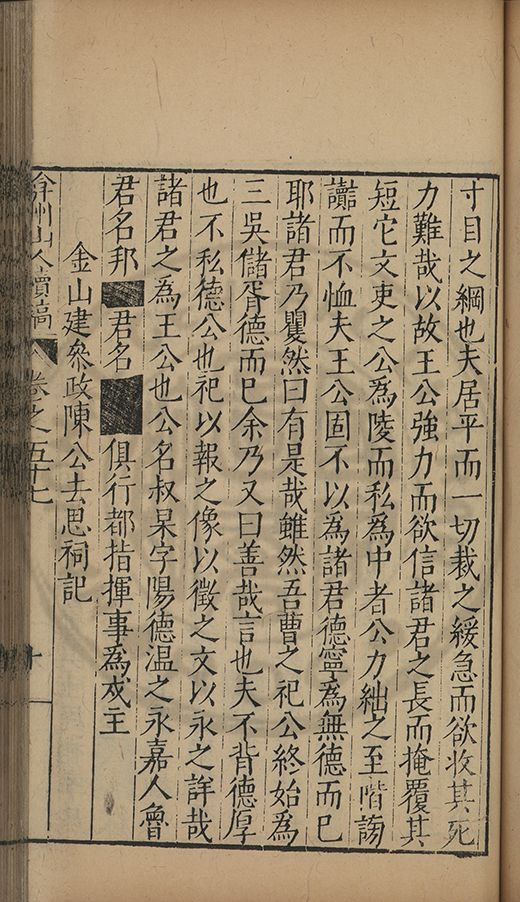 寸目之綱也夫居平而一切裁之緩急而欲收其死
力難哉以故王公強力而欲信諸君之長而掩覆其
短它文吏之公為陵而私為中者公力絀之至階詾
讟而不恤夫王公固不以為諸君德寧為無德而已
耶諸君乃瞿然曰有是哉雖然吾曹之祀公終始為
三吳儲胥德而已余乃又曰善哉言也夫不背德厚
也不私德公也祀以報之像以徵之文以永之詳哉
諸君之為王公也公名叔杲字陽德温之永嘉人魯
君名邦 君名 俱行都指揮事為戎主
金山建叅政陳公去思祠記
弇州山人續稿 卷之五十七 十